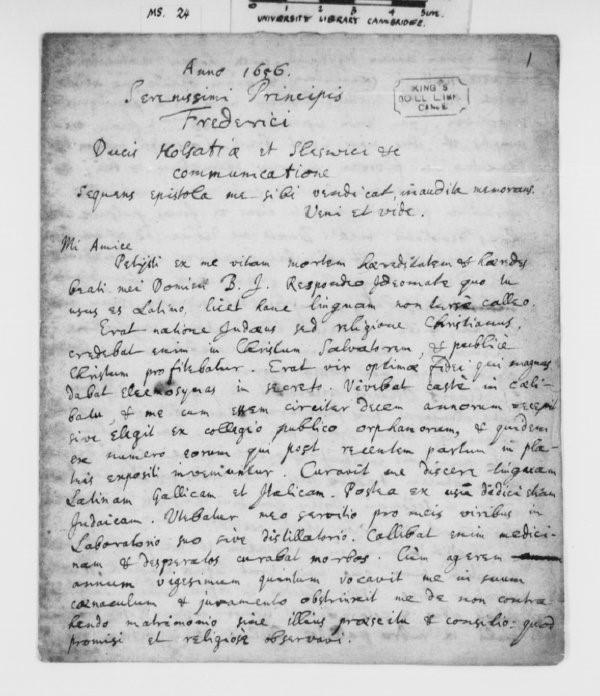 MS. 24
0 1 2 3 4 5cm.
UNIVERSITY LIBRARY CAMBRIDGE.
1
KING'S
COLL LIBR.
CAMB
Anno 1686.
Serenissimi Principis
Frederici
Ducis Holsatiæ et Sleswici etc
communicatione
Sequens epistola me sibi vendicat, inaudita memorans.
Veni et vide.
Mi Amice
Petijsti ex me vitam mortem hæreditatem & hæredes
beati mei Domini B. J. Respondeo Ideomate quo tu
usus es Latino, licet hanc linguam non calleo.
Erat natione Judæus sed religione Christianus,
credebat enim in Christum Salvatorem, & publicè
Christum profitebatur. Erat vir optimæ fidei qui magnas
dabat eleemosynas in secreto. Vivebat castè in cæli-
batu, & me cum essem circiter decem annorum recepit
sive elegit ex collegio publico orphanorum, & quidem
ex numero eorum qui post recentem partum in pla-
teis expositi inveniuntur. Curavit me discere linguam
Latinam Gallicam et Italicam. Postea ex usu didici etiam
Judaicam. Utebatur meo servitio pro meis viribus in
Laboratorio suo sive distillatorio. Callebat enim medici-
nam & desperatos curabat morbos. Cùm agerem
annum vigesimum quintum vocavit me in suum
cænaculum & juramento obstrinxit me de non contra
hendo matrimonio sine illius præscitu & consilio: quod
promisi et religiosè observavi.